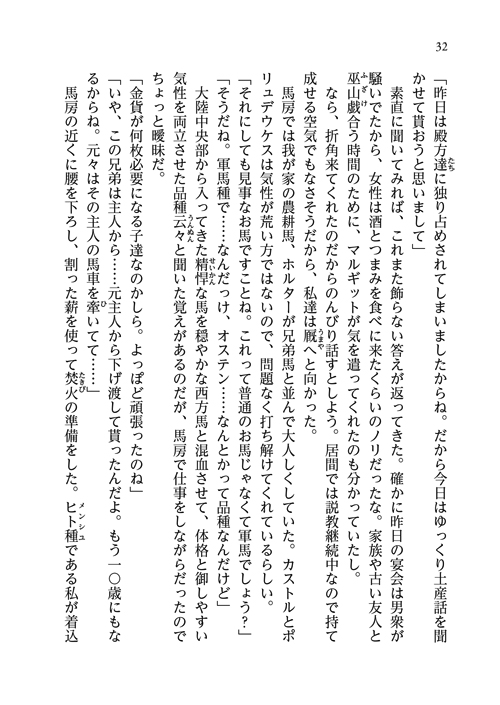 32
「昨日は殿方達に独り占めされてしまいましたからね。だから今日はゆっくり土産話を聞
かせて貰おうと思いまして」
素直に聞いてみれば、これまた飾らない答えが返ってきた。確かに昨日の宴会は男衆が
騒いでたから、女性は酒とつまみを食べに来たくらいのノリだったな。家族や古い友人と
巫山戯合う時間のために、マルギットが気を遣ってくれたのも分かっていたし。
なら、折角来てくれたのだからのんびり話すとしよう。居間では説教継続中なので持て
成せる空気でもなさそうだから、私達は厩へと向かった。
馬房では我が家の農耕馬、ホルターが兄弟馬と並んで大人しくしていた。カストルとポ
リュデウケスは気性が荒い方ではないので、問題なく打ち解けてくれているらしい。
「それにしても見事なお馬ですことね。これって普通のお馬じゃなくて軍馬でしょう?」
「そうだね。軍馬種で……なんだっけ、オステン……なんとかって品種なんだけど」
大陸中央部から入ってきた精悍な馬を穏やかな西方馬と混血させて、体格と御しやすい
気性を両立させた品種云々と聞いた覚えがあるのだが、馬房で仕事をしながらだったので
ちょっと曖昧だ。
「金貨が何枚必要になる子達なのかしら。よっぽど頑張ったのね」
「いや、この兄弟は主人から……元主人から下げ渡して貰ったんだよ。もう一〇歳にもな
るからね。元々はその主人の馬車を牽いてて……」
馬房の近くに腰を下ろし、割った薪を使って焚火の準備をした。ヒト種である私が着込